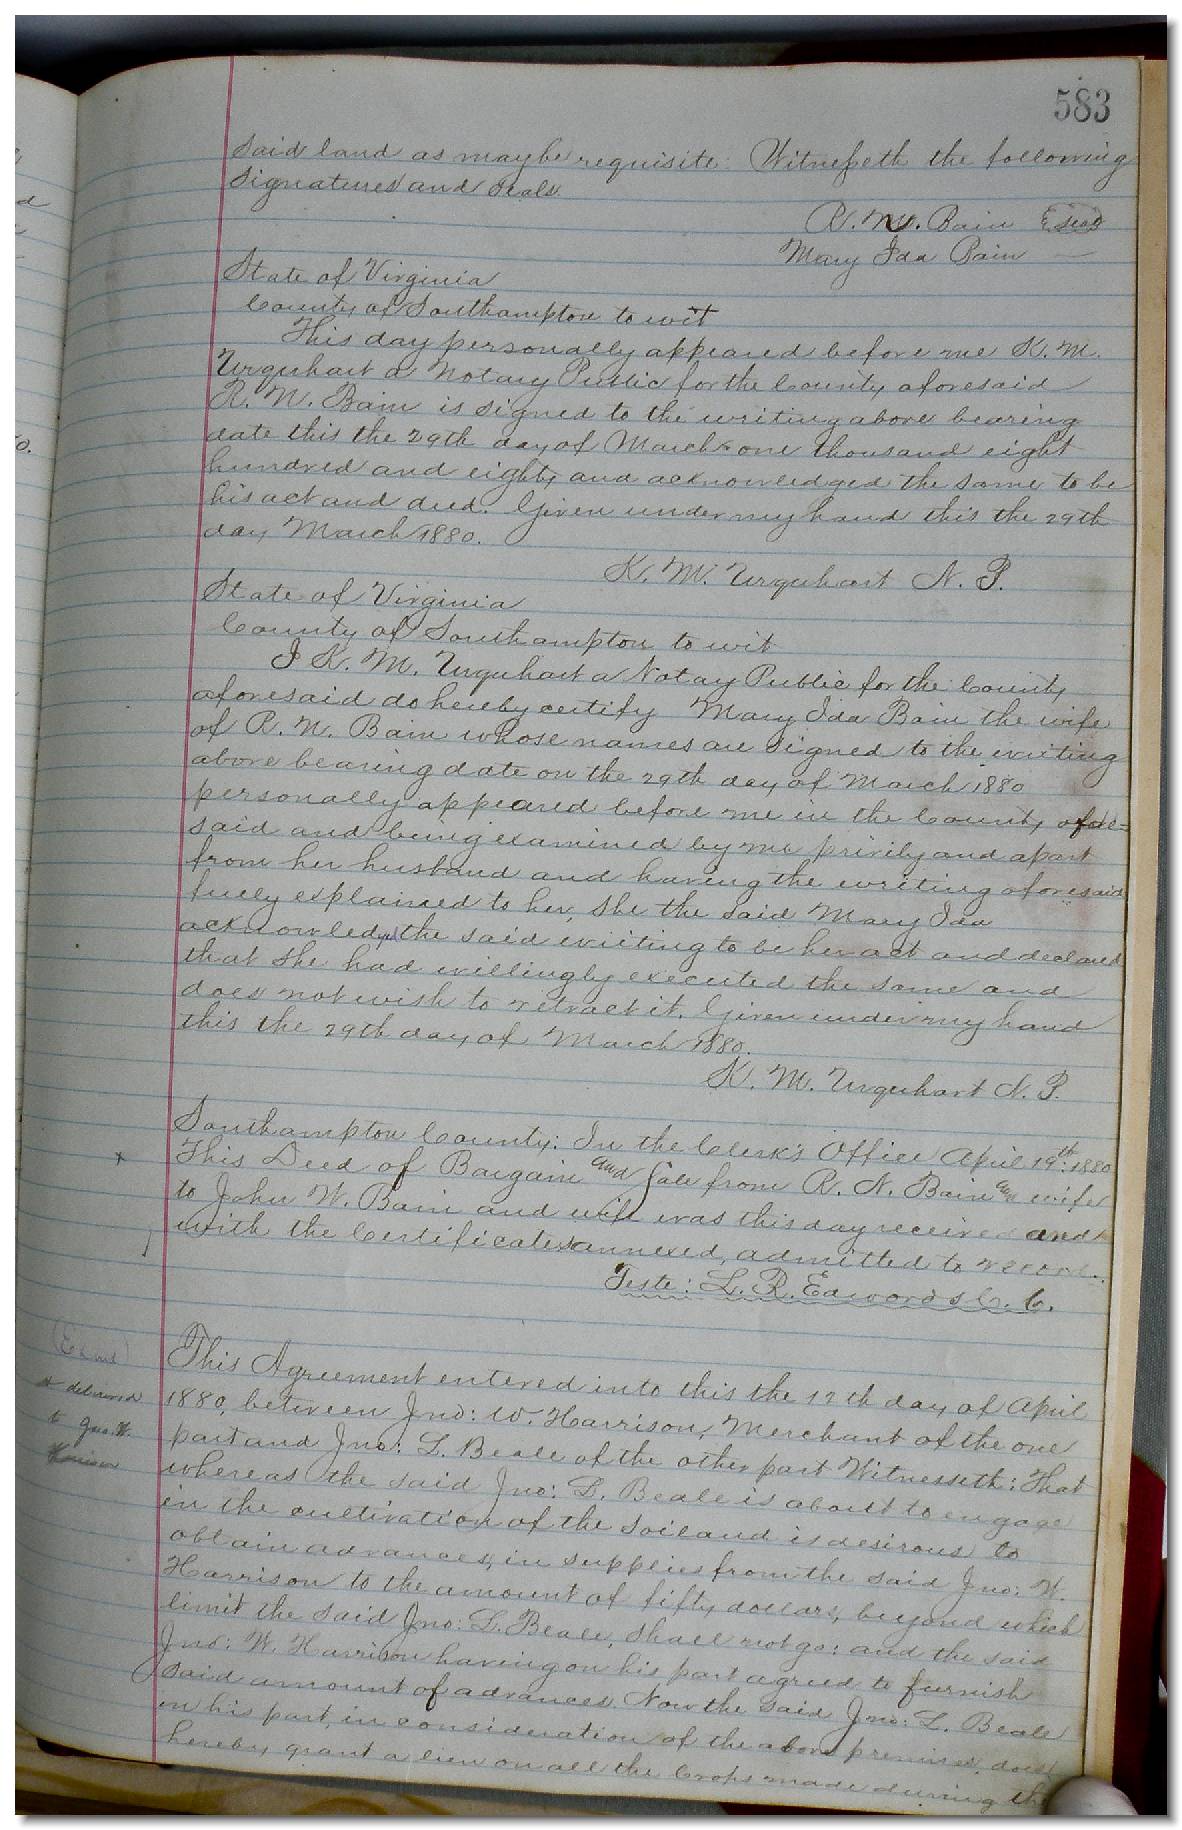 583
said land as maybe requisite: Witnesseth the following
signatures and seals
R. N. Bain Seal
Mary Ida Bain
State of Virginia
County of Southampton to wit
This day personally appeared before me K. M.
Urquhart a Notary Public for the County aforesaid
R. N. Bain is signed to the writing above bearing
date this the 29th day of March one thousand eight
hundred and eighty and acknowledged the same to be
his act and deed. Given under my hand this the 29th
day March 1880.
K. M. Urquhart N. P.
State of Virginia
County of Southampton to wit
I K. M. Urquhart a Notay Public for the County
aforesaid do hereby certify Mary Ida Bain the wife
of R. N. Bain whose names are signed to the writing
above bearing date on the 29th day of March 1880
personally appeared before me in the County afore=
said and being examined by me privily and apart
from her husband and having the writing aforesaid
fully explained to her, she the said Mary Ida
acknowledged the said writing to be her act and declared
that she had willingly executed the same and
does not wish to retract it. Given under my hand
this the 29th day of March 1880.
K. M. Urquhart N. P.
Southampton County: In the Clerk's Office April 19th: 1880
This Deed of Bargain and Sale from R. N. Bain and wife
to John W. Bain and wife was this day received and
with the Certificates annexed, admitted to record.
Teste: L. R. Edwards C. C.
This Agreement entered into this the 12th day of April
1880, between Jno: W. Harrison, Merchant of the one
part and Jno: L. Beale of the other part Witnesseth: That
whereas the said Jno: L. Beale is about to engage
in the cultivation of the soil and is desirous to
obtain advances, in supplies from the said Jno: W.
Harrison to the amount of fifty dollars, beyond which
limit the said Jno: L. Beale, shall not go: and the said
Jno: W. Harrison having on his part agreed to furnish
said amount of advances. Now the said Jno: L. Beale
on his part, in consideration of the above premises, does
hereby grant a lien on all the Crops made during the
delivered
to Jno. W.
Harrison